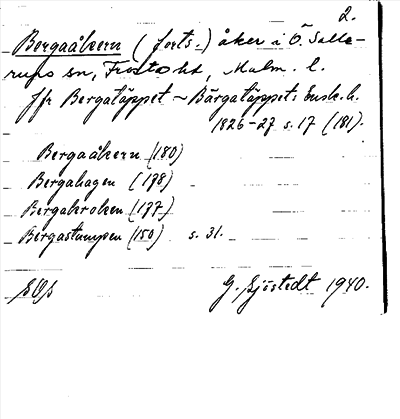 2.
Bergaåkern (forts.) åker i Ö. Salle-
rups sn, Frosta hd, Malm. l.
Jfr Bergatäppet ~ Bärgatäppet: Ensk. h.
1826-27 s. 17 (181).
Bergaåkern (180)
Bergahagen (178)
Bergakroken (177)
Bergastumpen (150) s. 31.
G. Sjöstedt 1940.